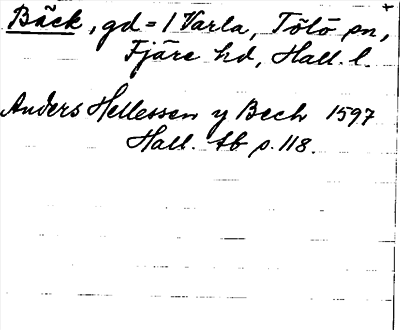 Bäck, gd = 1 Varla, Tölö sn,
Fjäre hd, Hall. l.
Anders Hellessen y Bech 1597
Hall. tb p. 118.